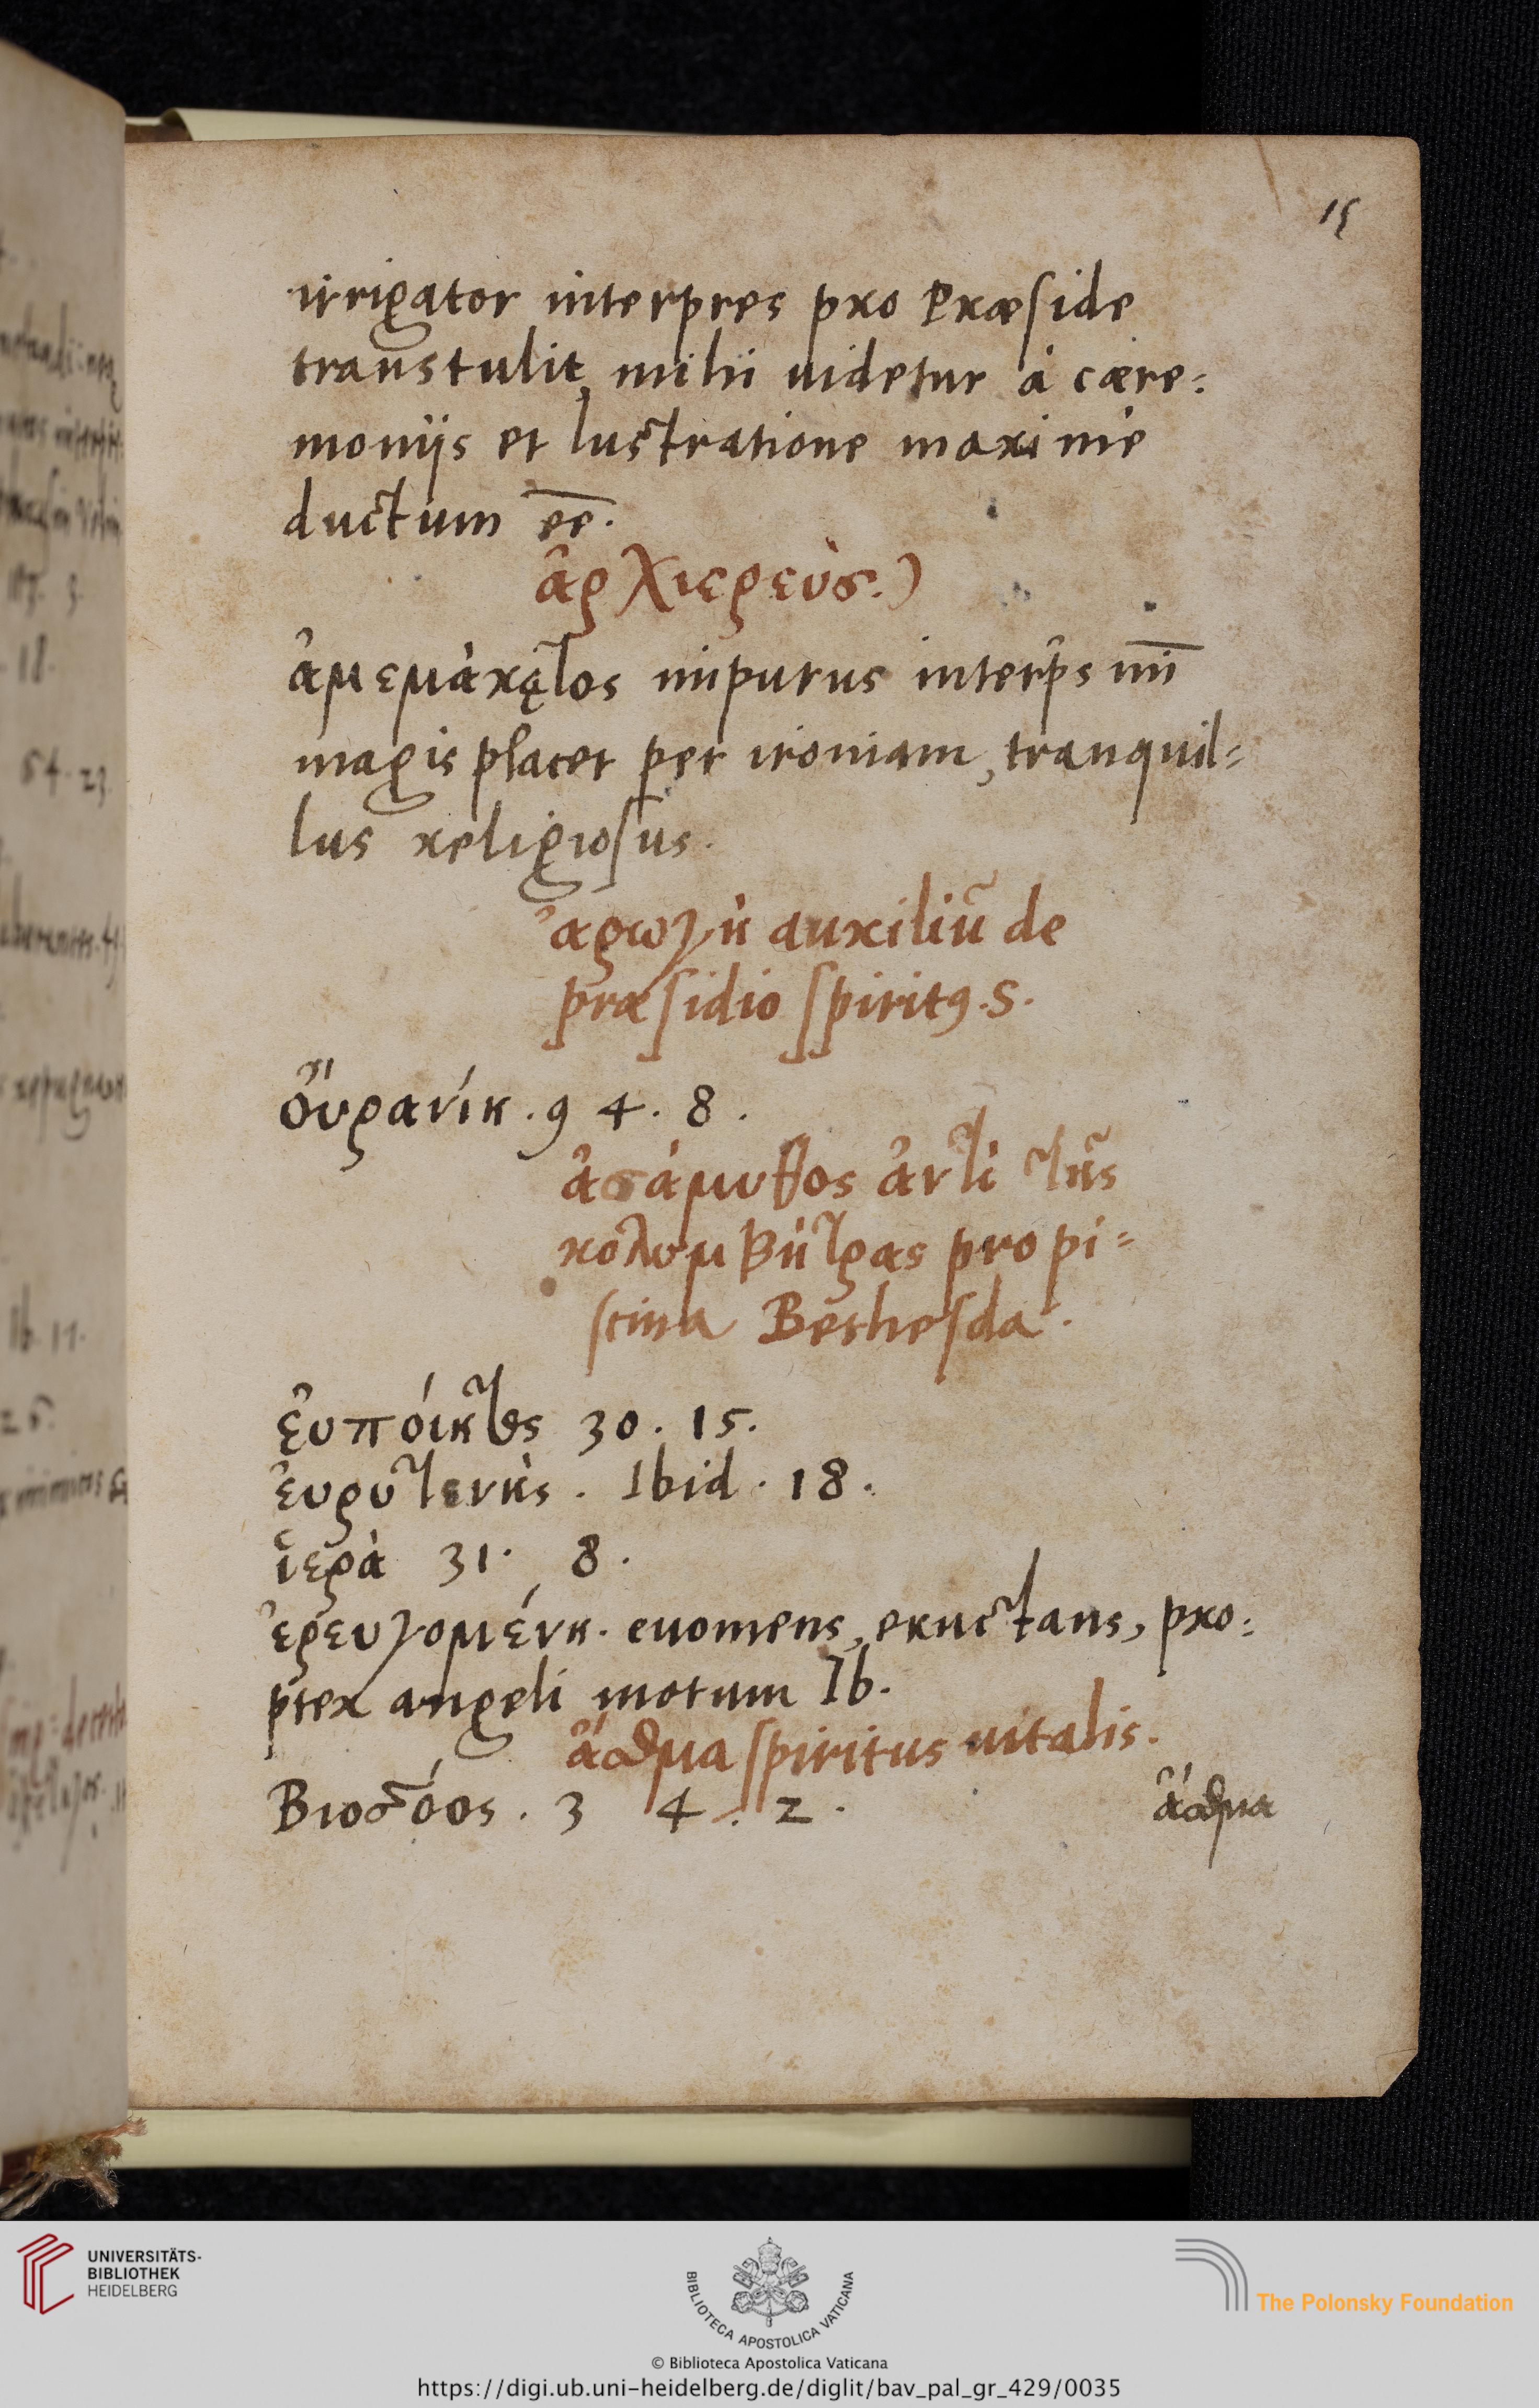 15
irrigator interpres pro Præside
transtulit, mihi uidetur à cære=
moniis et lustratione maximè
ductum ēē.
ἀρχιερεὺς.)
ἀμεμάκṭος impurus interp̄s mī
magis placet per ironiam, tranquil=
lus religiosus.
ἀρωγὴ auxiliū de
præsidio spiritꝯ. S.
οὐρανίη. 9 4. 8.
ἀσάμυθος ἀντὶ τῆς
κολυμβήτρας pro pi=
scina Bethesda.
ἐυπόικτος 30. 15.
ἐυρυτενὴς. Ibid. 18.
ἱερὰ 31. 8.
ἐρευγομένη. euomens, eructans, pro=
pter angeli motum Ib.
ἄσθμα spiritus uitalis.
Βιοσόος. 3 4. 2. ἄσθμα
UNIVERSITÄTS-
BIBLIOTHEK
HEIDELBERG
BIBLIOTECA APOSTOLICA VATICANA
The Polonsky Foundation
© Biblioteca Apostolica Vaticana
https://digi.ub.uni-heidelberg.de/diglit/bav_pal_gr_429/0035